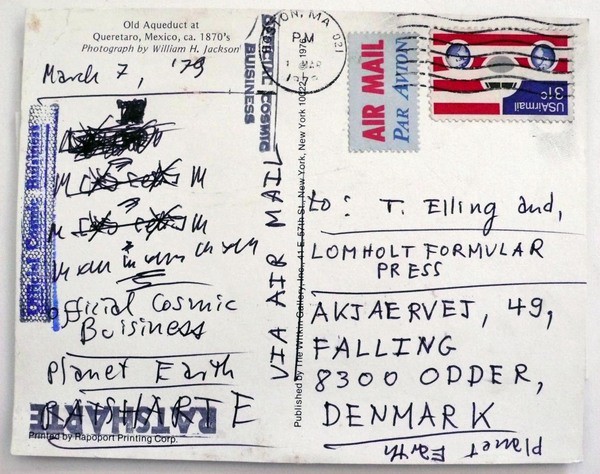 Old Aqueduct at
Queretaro, Mexico, ca. 1870's
Photograph by William H. Jackson
March 7, '79
Official Cosmic Business
Official Cosmic
Buisiness
Planet Earth
RATSHARTE
RATSHARTE
Printed by Rapoport Printing Corp.
OFFICIAL COSMIC
BUSINESS
VIA AIR MAIL
Published by The Witkin Gallery, Inc., 41 E. 57th St., New York, New York 10022
MA 021
PM
AIR MAIL
PAR AVION
USAirmail
31c
to: T. Elling and,
LOMHOLT FORMULAR
PRESS
AKJAERVEJ, 49,
FALLING
8300 ODDER,
DENMARK
Planet
Earth